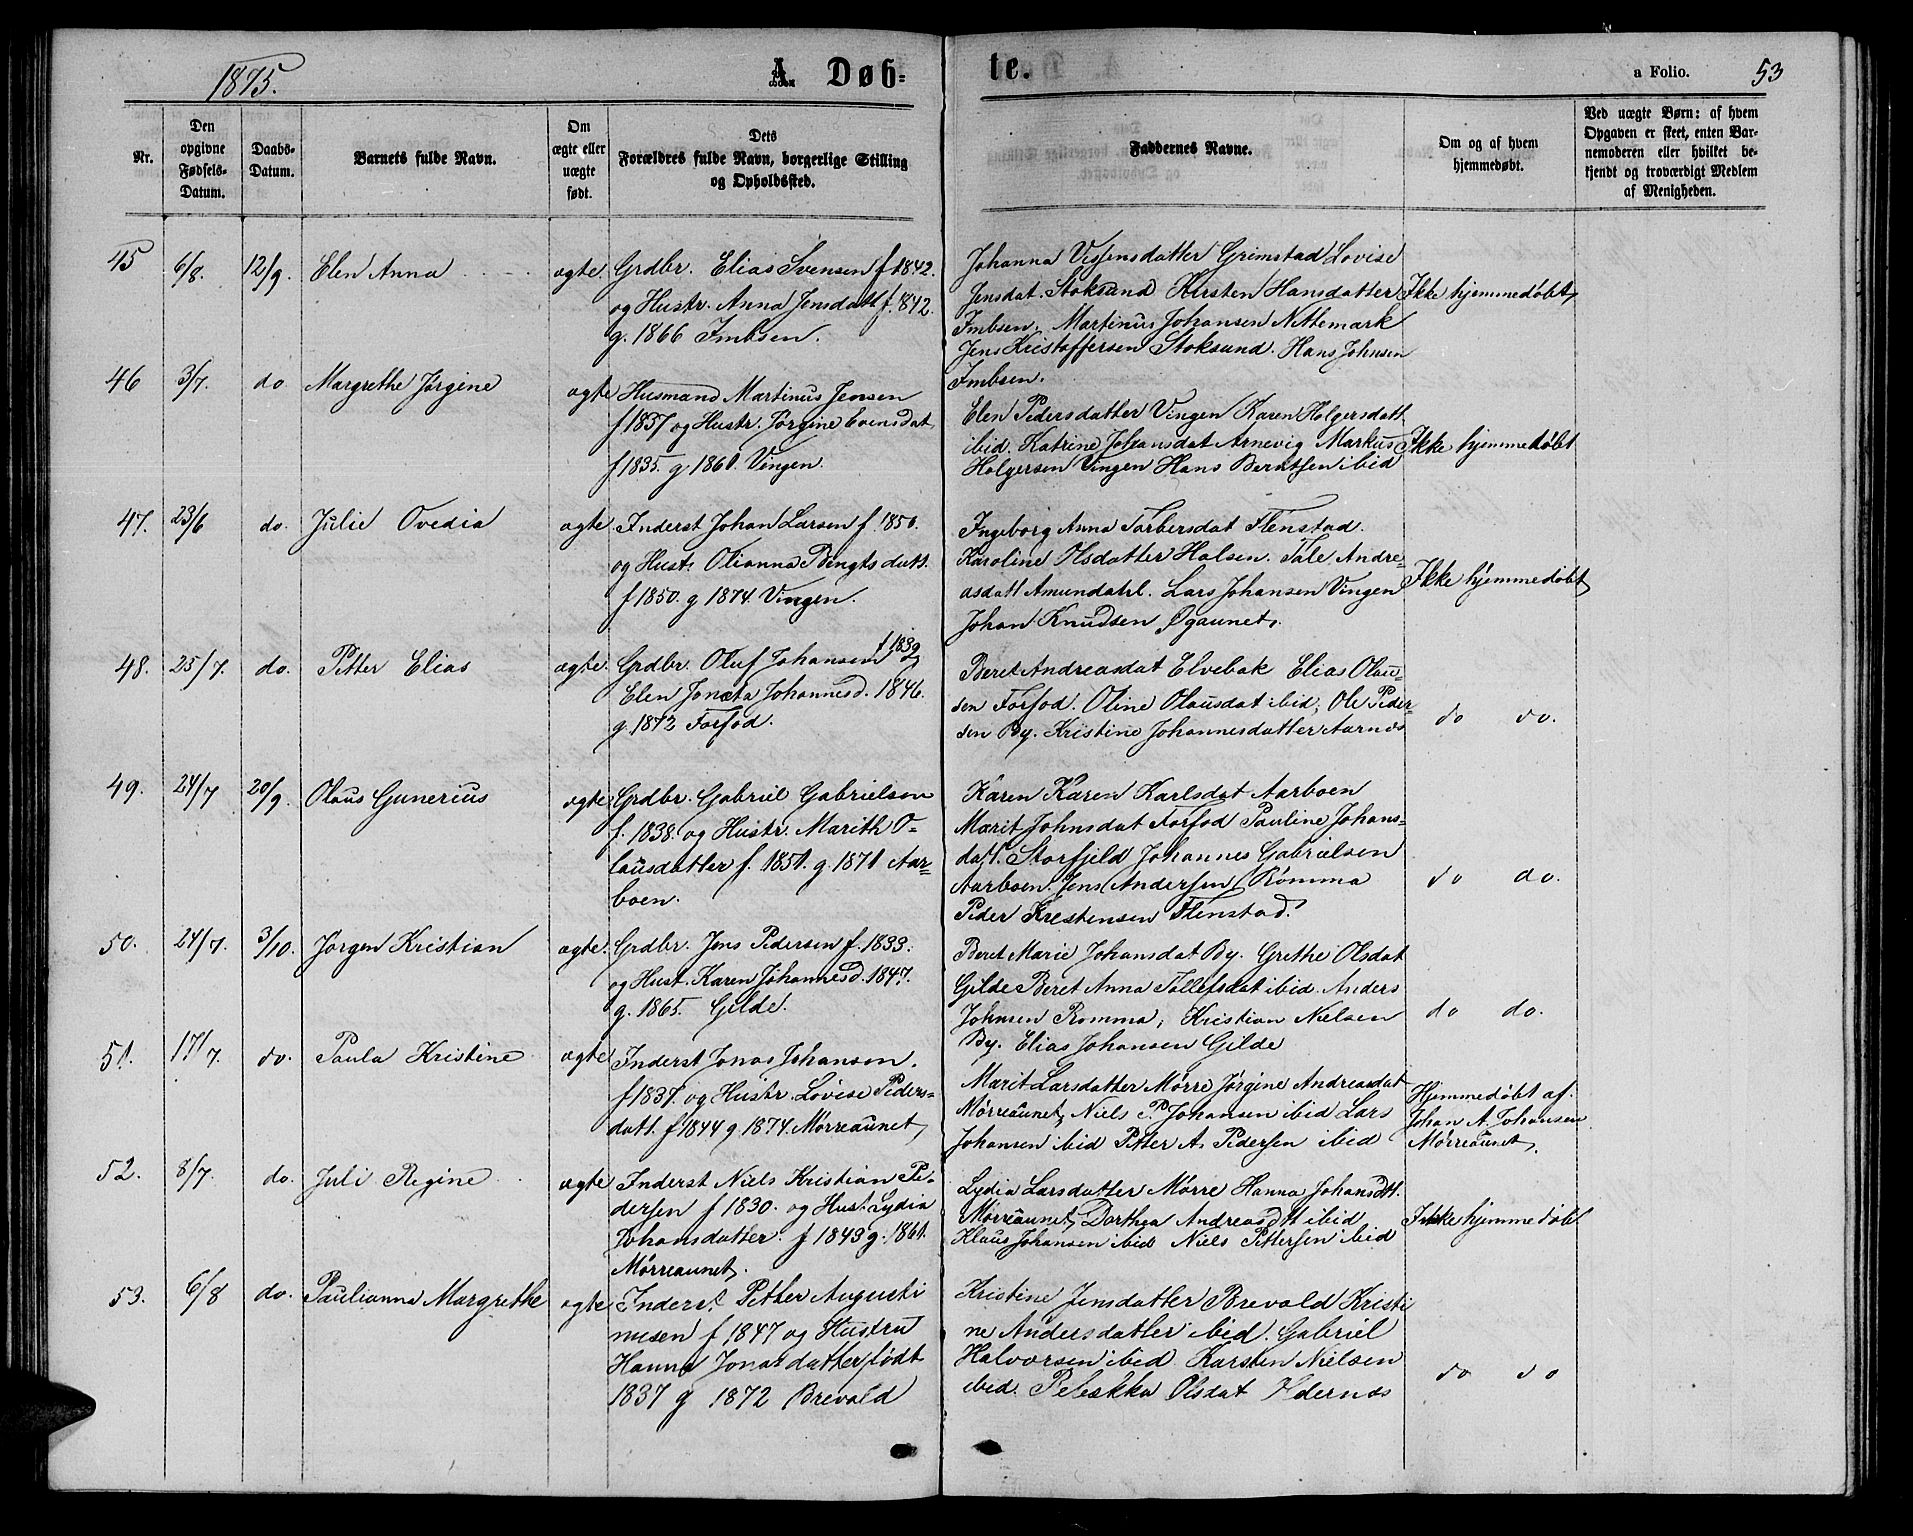 1875.
A. Døb-
te.
a Folio. 53
Nr.
Den
opgivne
Fødsels-
Datum.
Daabs-
Datum.
Barnets fulde Navn.
Om
ægte eller
uægte
født.
Dets
Forældres fulde Navn, borgerlige Stilling
og Opholdssted.
Faddernes Navne.
Om og af hvem
hjemmedøbt.
Ved uægte Børn: af hvem
Opgaven er skeet, enten Bar-
nemoderen eller hvilket be-
kjendt og troværdigt Medlem
af Menigheden.
45 6/8. 12/9. Elen Anna ægte
Grdbr. Elias Svensen f. 1842.
og Hustr. Anna Jensdatt f. 1842.
g. 1866 Imbsen.
Johanna Grimstad Lovise
Jensdat. Stoksund Kirsten Hansdatter
Imbsen, Martinus Johansen Nettemark
Jens Kristoffersen Stoksund. Hans Johnsen
Imbsen.
Ikke hjemmedøbt,
46 3/7. do Margrethe Jørgine ægte
Husmand Martinus Jensen
f 1837 og Hustr. Jørgine Evensdat
f 1835. g 1860. Vingen.
Elen Pedersdatter Vingen Karen Holgersdatt
ibid, Katrine Johansdat Arnevig Markus
Holgersen Vingen Hans Berntsen ibid
Ikke hjemmedøbt
47. 23/6 do. Julie Ovedia ægte
Inderst Johan Larsen f. 1850.
og Hust. Olianna Bengtsdatt.
f 1850. g 1874. Vingen.
Ingeborg Anna Torbersdat Flenstad.
Karoline Olsdatter Halsen. Tale Andre-
asdatt Amundahl. Lars Johansen Vingen
Johan Knudsen Øgaunet.
Ikke hjemmedøbt,
48. 25/7. do. Petter Elias ægte
Grdbr. Oluf Johansen f 1839
Elen Jonæta Johannesd. 1846.
g. 1872 Forfod.
Beret Andreasdat Elvebak Elias Olau-
sen Forfod. Oline Olausdat ibid, Ole Peder-
sen By. Kristine Johannesdatter Aarnes
do do.
49. 24/7 20/9. Olaus Gunerius ægte
Grdbr. Gabriel Gabrielsen
f. 1838. og Hustr. Marith O-
lausdatter f. 1851. g. 1871 Aar-
boen.
Karen Karen Karlsdat Aarboen
Marit Johnsdat Forfod Pauline Johans-
datt. Storfjeld Johannes Gabrielsen
Aarboen. Jens Andersen Romma
Peder Krestensen Flenstad.
do do.
50. 24/7. 3/10. Jørgen Kristian ægte.
Grdbr. Jens Pedersen f. 1833.
og Hust. Karen Johannesd. 1847.
g. 1865. Gilde.
Beret Marie Johansdat By. Grethe Olsdat
Gilde Beret Anna Tollefsdat ibid. Anders
Johnsen Romma, Kristian Nielsen
By. Elias Johansen Gilde
do do.
51. 17/7. do. Paula Kristine ægte
Inderst Jonas Johansen.
f 1837. og Hustr. Lovise Peders-
datt. f 1844 g 1874. Mørreaunet,
Marit Larsdatter Mørre Jørgine Andreasdat
Mørreaunet, Niels P. Johansen ibid Lars
Johansen ibid Petter A. Pedersen ibid
Hjemmedøbt af.
Johan A. Johansen
Mørreaunet.
52. 8/7. do. Juli Regine ægte
Inderst Niels Kristian Pe-
dersen f 1830. og Hust. Lydia
Johansdatter. f 1843 g. 1861.
Mørreaunet.
Lydia Larsdatter Mørre Hanna Johansdtt.
Mørreaunet, Dorthea Andreasdtt ibid
Klaus Johansen ibid Niels Pettersen ibid
Ikke hjemmedøbt
53. 6/8 do. Paulianna Margrethe ægte
Inderst Petter Augusti
nusen f 1847 og Hustru
Hanna Jonasdatter født
1837 g 1872 Brevold
Kristine Jensdatter Brevold Kristi
ne Andersdatter ibid. Gabriel
Halvorsen ibid Karsten Nielsen
ibid. Rebekka Olsdat Hdernæs
do do